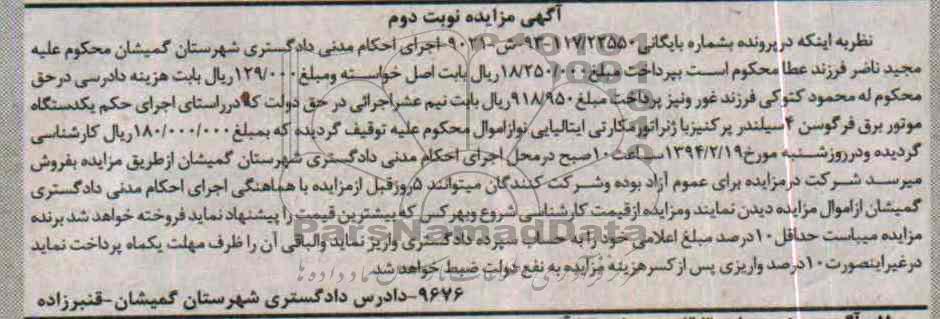 آگهی مزایده نوبت دوم
نظر به اینکه در پرونده بشماره بایگانی ۱۱۷/۲۲۵۵۰-۹۳-ش-۹۰۲۱-اجرای احکام مدنی دادگستری شهرستان گمیشان محکوم علیه
مجید ناضر فرزند عطا محکوم است بپرداخت مبلغ ۱۸/۲۵۰/۰۰۰ ریال بابت اصل خواسته و مبلغ ۱۲۹/۰۰۰ ریال بابت هزینه دادرسی در حق
محکوم له محمود کتوکی فرزند غور و نیز پرداخت مبلغ ۹۱۸/۹۵۰ ریال بابت نیم عشر اجرائی در حق دولت که در راستای اجرای حکم یکدستگاه
موتور برق فرگوسن ۴ سیلندر پرکنیز با ژنراتور مکارتی ایتالیایی نو از اموال محکوم علیه توقیف گردیده که بمبلغ ۱۸۰/۰۰۰/۰۰۰ ریال کارشناسی
گردیده و در روز شنبه مورخ ۱۳۹۴/۲/۱۹ ساعت ۱۰ صبح در محل اجرای احکام مدنی دادگستری شهرستان گمیشان از طریق مزایده بفروش
میرسد شرکت در مزایده برای عموم آزاد بوده و شرکت کنندگان میتوانند ۵ روز قبل از مزایده با هماهنگی اجرای احکام مدنی دادگستری
گمیشان از اموال مزایده دیدن نمایند و مزایده از قیمت کارشناسی شروع و بهر کس که بیشترین قیمت را پیشنهاد نماید فروخته خواهد شد برنده
مزایده میباست حداقل ۱۰ درصد مبلغ اعلامی خود را به حساب سپرده دادگستری واریز نماید والباقی آن را ظرف مهلت یکماه پرداخت نماید
در غیر اینصورت ۱۰ درصد واریزی پس از کسر هزینه مزایده به نفع دولت ضبط خواهد شد
۹۶۷۶-دادرس دادگستری شهرستان گمیشان-قنبرزاده
ParsNamadData